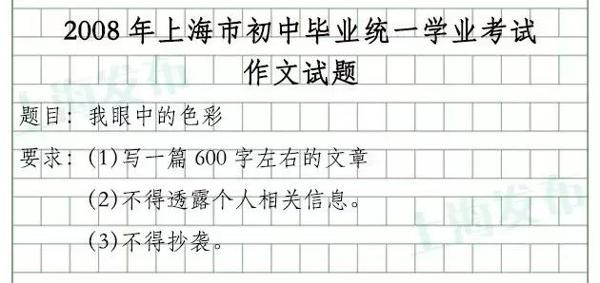 2008年上海市初中毕业统一学业考试
作文试题
题目：我眼中的色彩
要求：(1)写一篇600字左右的文章
(2)不得透露个人相关信息。
(3)不得抄袭。
上海发布
上海发布